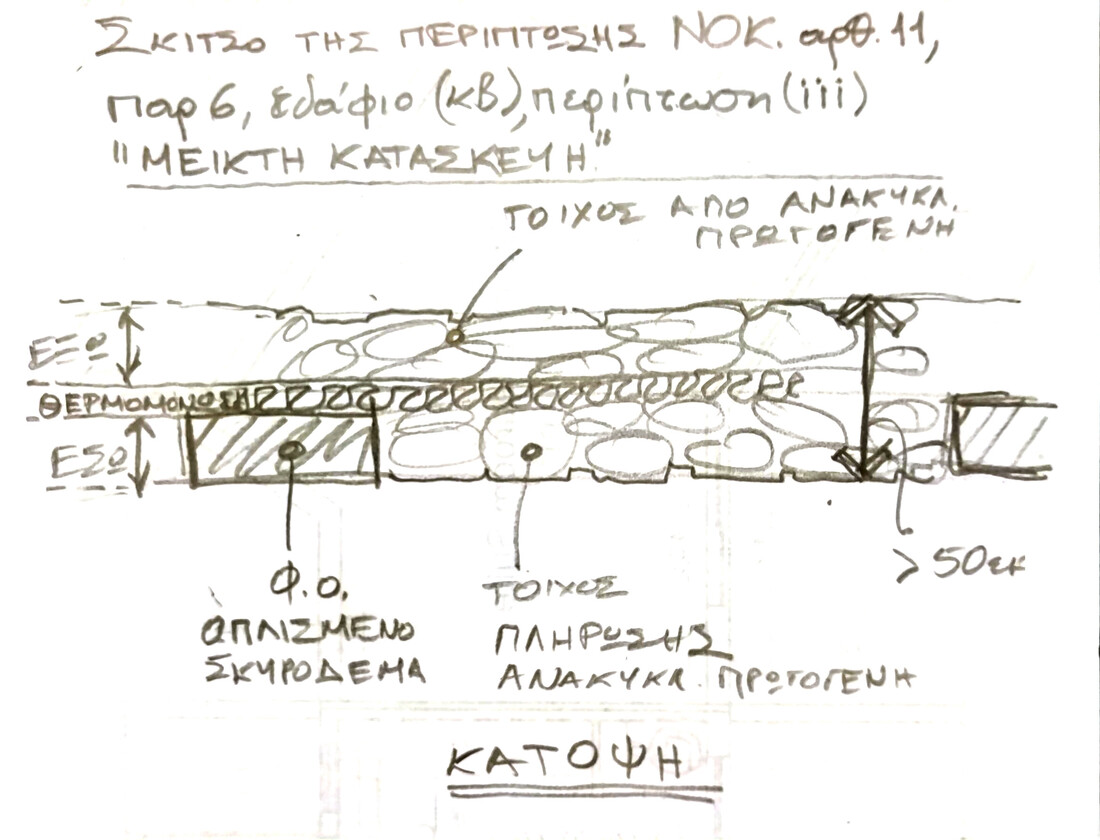 ΣΚΙΤΣΟ ΤΗΣ ΠΕΡΙΠΤΩΣΗΣ ΝΟΚ. αρθ. 11,
παρ 6, εδάφιο (κβ), περίπτωση (iii)
"ΜΕΙΚΤΗ ΚΑΤΑΣΚΕΥΗ"
ΤΟΙΧΟΣ ΑΠΟ ΑΝΑΚΥΚΛ.
ΠΡΩΤΟΓΕΝΗ
ΕΞΩ
ΘΕΡΜΟΜΟΝΩΣΗ
ΕΣΩ
> 50εκ
Φ.Ο.
ΟΠΛΙΣΜΕΝΟ
ΣΚΥΡΟΔΕΜΑ
ΤΟΙΧΟΣ
ΠΛΗΡΩΣΗΣ
ΑΝΑΚΥΚΛ. ΠΡΩΤΟΓΕΝΗ
ΚΑΤΟΨΗ